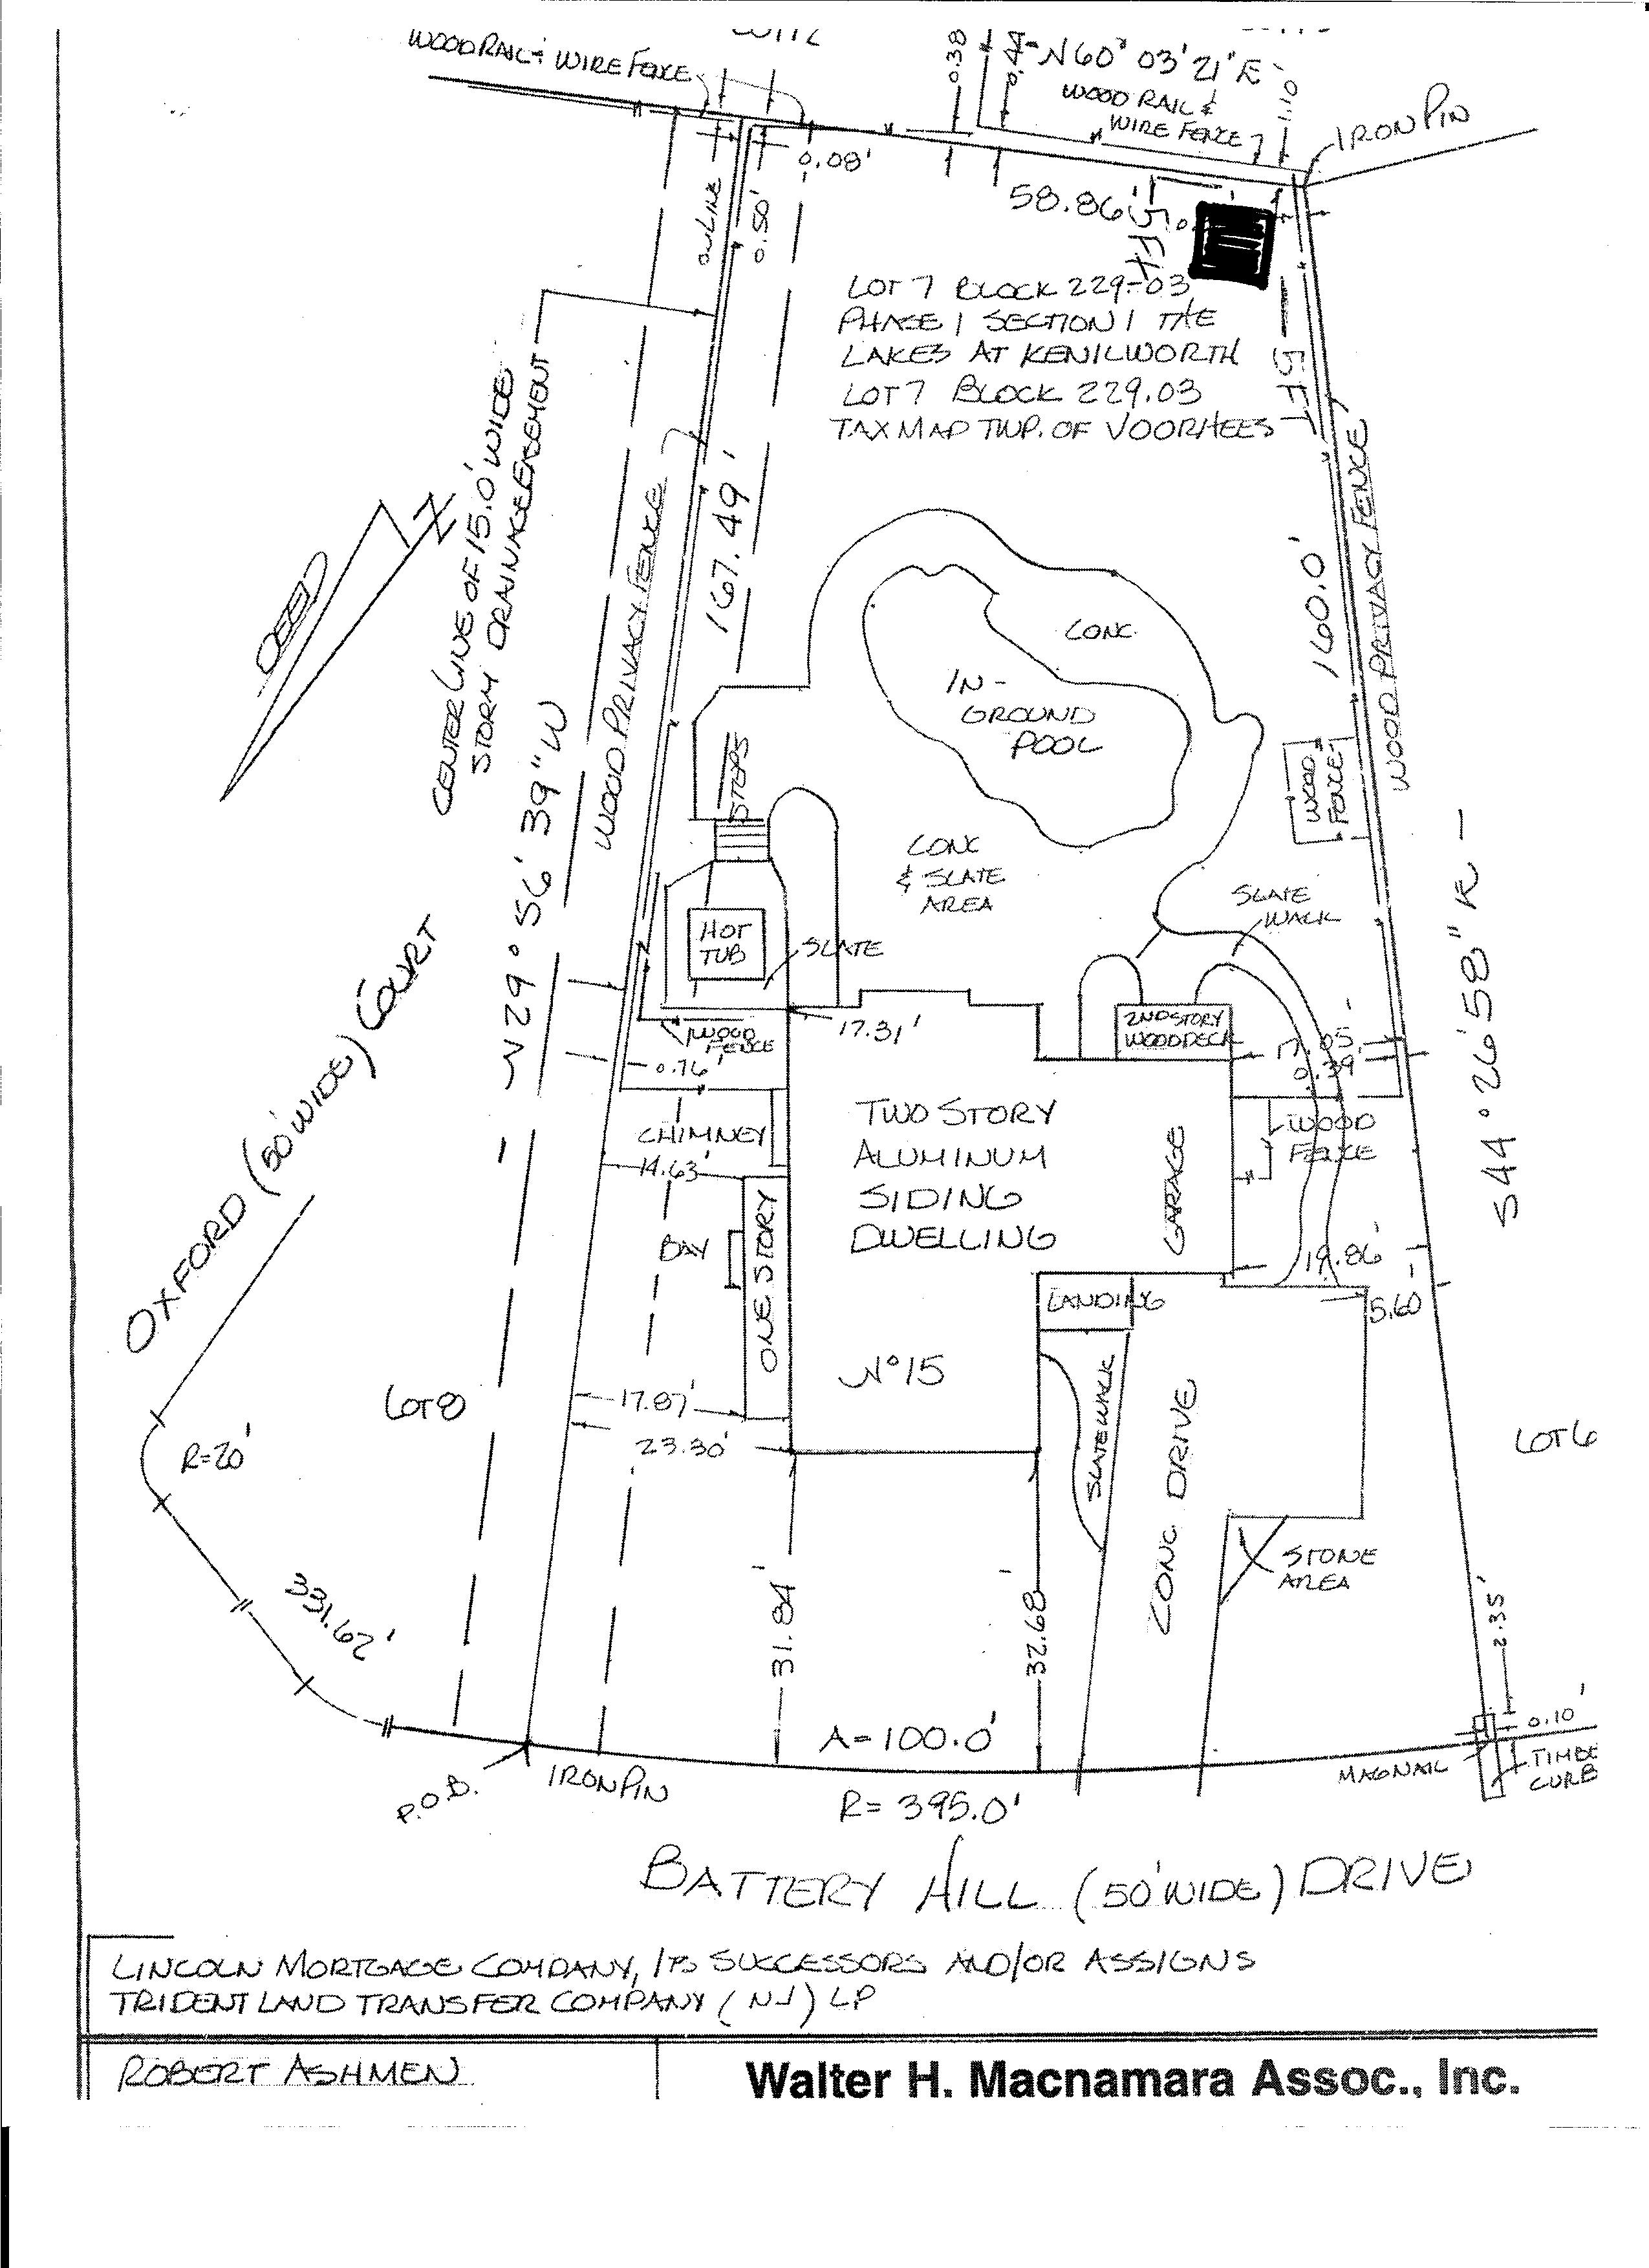 WOOD RAIL & WIRE FENCE
0.38
N60° 03' 21" E
WOOD RAIL &
WIRE FENCE
1.10
IRON PIN
0.08'
ON LINE
0.50'
58.86'
5 FT
LOT 7 BLOCK 229-03
PHASE 1 SECTION 1 THE
LAKES AT KENILWORTH
LOT 7 BLOCK 229.03
TAX MAP TWP. OF VOORHEES
5 FT
CENTER LINE OF 15.0' WIDE
STORM DRAINAGE EASEMENT
DEED
N
WOOD PRIVACY FENCE
167.49'
160.0'
WOOD PRIVACY FENCE
N29° 56' 39" W
CONC.
IN-
GROUND
POOL
STEPS
WOOD
FENCE
CONC
& SLATE
AREA
SLATE
WALK
HOT
TUB
SLATE
S44° 26' 58"
OXFORD (50' WIDE) COURT
WOOD
FENCE
17.31'
2ND STORY
WOOD DECK
17.05
0.76'
0.39'
CHIMNEY
14.63'
TWO STORY
ALUMINUM
SIDING
DWELLING
GARAGE
WOOD
FENCE
BAY
ONE STORY
19.86'
LANDING
5.60
No 15
LOT 8
17.87'
23.30'
SLATE WALK
CONC. DRIVE
LOT 6
R=20'
STONE
AREA
331.62'
31.84'
32.68'
2.35'
A=100.0'
0.10'
P.O.B.
IRON PIN
MAG NAIL
TIMBE
CURB
R= 395.0'
BATTERY HILL (50' WIDE) DRIVE
LINCOLN MORTGAGE COMPANY, ITS SUCCESSORS AND/OR ASSIGNS
TRIDENT LAND TRANSFER COMPANY (NJ) LP
ROBERT ASHMEN
Walter H. Macnamara Assoc., Inc.